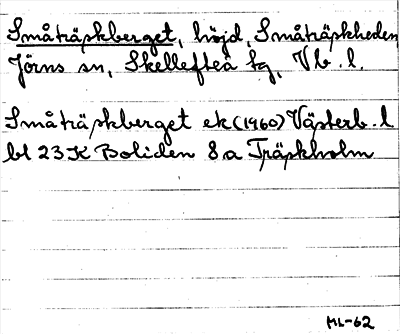 Småträskberget, höjd, Småträskheden
Jörns sn, Skellefteå tg, Vb. l.
Småträskberget ek (1960) Västerb. l
bl 23 K Boliden 8 a Träskholm
ML-62